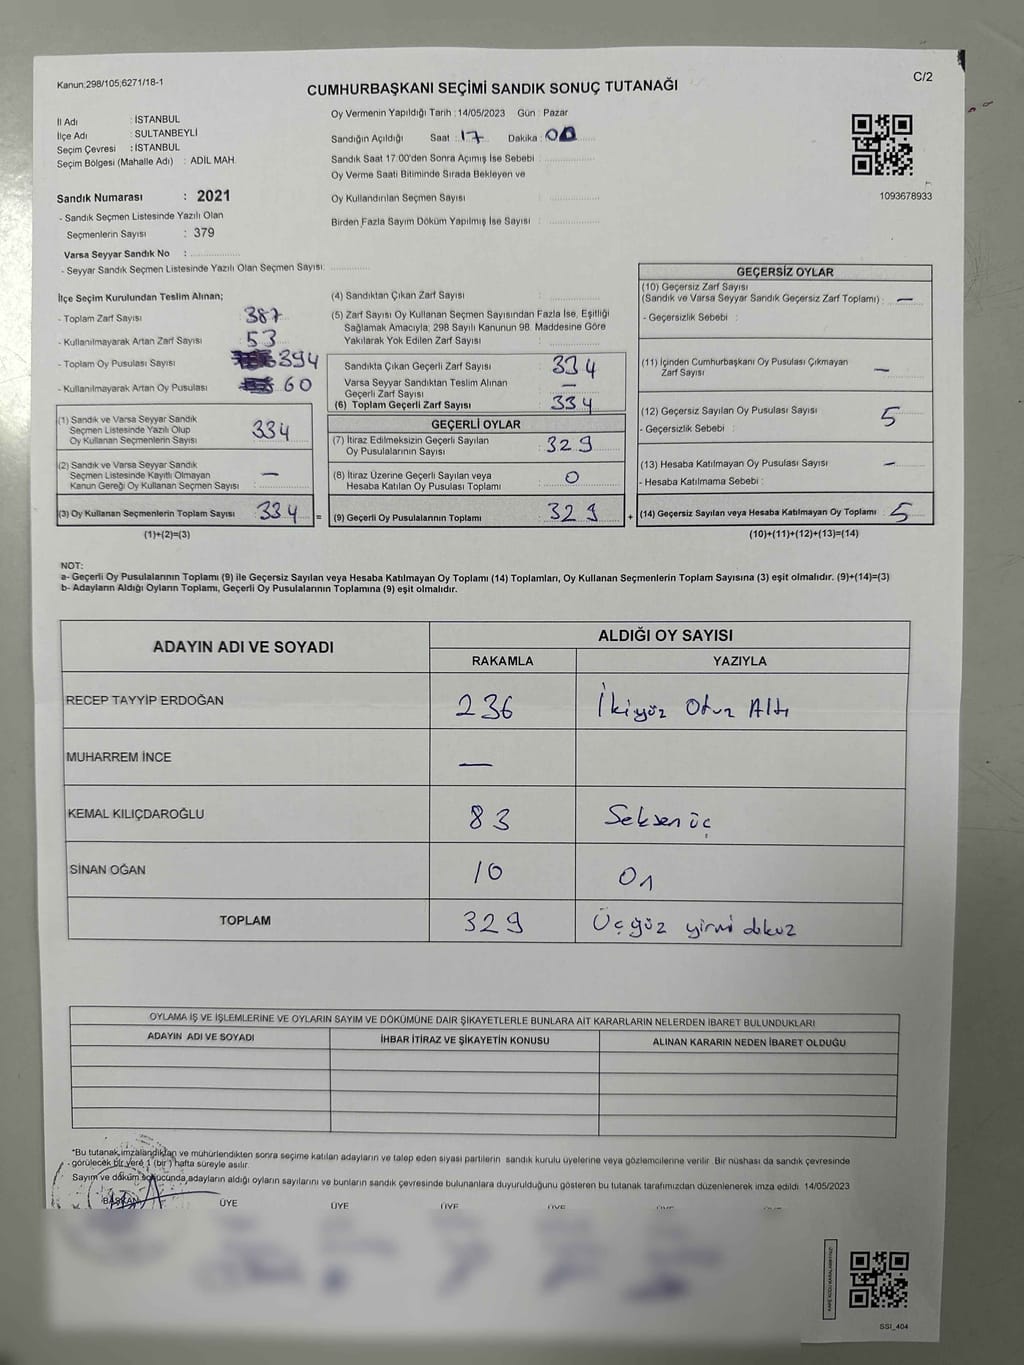 Kanun:298/105;6271/18-1
C/2
CUMHURBAŞKANI SEÇİMİ SANDIK SONUÇ TUTANAĞI
İl Adı : İSTANBUL
İlçe Adı : SULTANBEYLİ
Seçim Çevresi : İSTANBUL
Seçim Bölgesi (Mahalle Adı) : ADİL MAH.
Sandık Numarası : 2021
- Sandık Seçmen Listesinde Yazılı Olan
Seçmenlerin Sayısı : 379
Varsa Seyyar Sandık No :
- Seyyar Sandık Seçmen Listesinde Yazılı Olan Seçmen Sayısı:
Oy Vermenin Yapıldığı Tarih : 14/05/2023 Gün : Pazar
Sandığın Açıldığı Saat : 17 Dakika : 00
Sandık Saat 17:00'den Sonra Açımış İse Sebebi :
Oy Verme Saati Bitiminde Sırada Bekleyen ve
Oy Kullandırılan Seçmen Sayısı :
Birden Fazla Sayım Döküm Yapılmış İse Sayısı :
1093678933
İlçe Seçim Kurulundan Teslim Alınan;
- Toplam Zarf Sayısı : 387
- Kullanılmayarak Artan Zarf Sayısı : 53
- Toplam Oy Pusulası Sayısı : 394
- Kullanılmayarak Artan Oy Pusulası : 60
(1) Sandık ve Varsa Seyyar Sandık
Seçmen Listesinde Yazılı Olup
Oy Kullanan Seçmenlerin Sayısı : 334
(2) Sandık ve Varsa Seyyar Sandık
Seçmen Listesinde Kayıtlı Olmayan
Kanun Gereği Oy Kullanan Seçmen Sayısı : —
(3) Oy Kullanan Seçmenlerin Toplam Sayısı : 334 =
(1)+(2)=(3)
(4) Sandıktan Çıkan Zarf Sayısı :
(5) Zarf Sayısı Oy Kullanan Seçmen Sayısından Fazla İse, Eşitliği
Sağlamak Amacıyla; 298 Sayılı Kanunun 98. Maddesine Göre
Yakılarak Yok Edilen Zarf Sayısı :
Sandıkta Çıkan Geçerli Zarf Sayısı : 334
Varsa Seyyar Sandıktan Teslim Alınan
Geçerli Zarf Sayısı : —
(6) Toplam Geçerli Zarf Sayısı : 334
GEÇERLİ OYLAR
(7) İtiraz Edilmeksizin Geçerli Sayılan
Oy Pusulalarının Sayısı : 329
(8) İtiraz Üzerine Geçerli Sayılan veya
Hesaba Katılan Oy Pusulası Toplamı : 0
(9) Geçerli Oy Pusulalarının Toplamı : 329 +
GEÇERSİZ OYLAR
(10) Geçersiz Zarf Sayısı
(Sandık ve Varsa Seyyar Sandık Geçersiz Zarf Toplamı) : —
- Geçersizlik Sebebi :
(11) İçinden Cumhurbaşkanı Oy Pusulası Çıkmayan
Zarf Sayısı : —
(12) Geçersiz Sayılan Oy Pusulası Sayısı : 5
- Geçersizlik Sebebi :
(13) Hesaba Katılmayan Oy Pusulası Sayısı : —
- Hesaba Katılmama Sebebi :
(14) Geçersiz Sayılan veya Hesaba Katılmayan Oy Toplamı : 5
(10)+(11)+(12)+(13)=(14)
NOT:
a- Geçerli Oy Pusulalarının Toplamı (9) ile Geçersiz Sayılan veya Hesaba Katılmayan Oy Toplamı (14) Toplamları, Oy Kullanan Seçmenlerin Toplam Sayısına (3) eşit olmalıdır. (9)+(14)=(3)
b- Adayların Aldığı Oyların Toplamı, Geçerli Oy Pusulalarının Toplamına (9) eşit olmalıdır.
ADAYIN ADI VE SOYADI ALDIĞI OY SAYISI
RAKAMLA YAZIYLA
RECEP TAYYİP ERDOĞAN 236 İkiyüz Otuz Altı
MUHARREM İNCE —
KEMAL KILIÇDAROĞLU 83 Seksen üç
SİNAN OĞAN 10 On
TOPLAM 329 Üçyüz yirmi dokuz
OYLAMA İŞ VE İŞLEMLERİNE VE OYLARIN SAYIM VE DÖKÜMÜNE DAİR ŞİKAYETLERLE BUNLARA AİT KARARLARIN NELERDEN İBARET BULUNDUKLARI
ADAYIN ADI VE SOYADI İHBAR İTİRAZ VE ŞİKAYETİN KONUSU ALINAN KARARIN NEDEN İBARET OLDUĞU
*Bu tutanak,imzalandıktan ve mühürlendikten sonra seçime katılan adayların ve talep eden siyasi partilerin sandık kurulu üyelerine veya gözlemcilerine verilir. Bir nüshası da sandık çevresinde
görülecek bir yere 1 (bir ) hafta süreyle asılır.
Sayım ve döküm sonucunda,adayların aldığı oyların sayılarını ve bunların sandık çevresinde bulunanlara duyurulduğunu gösteren bu tutanak tarafımızdan düzenlenerek imza edildi. 14/05/2023
BAŞKAN ÜYE ÜYE ÜYE ÜYE ÜYE ÜYE
SSI_404